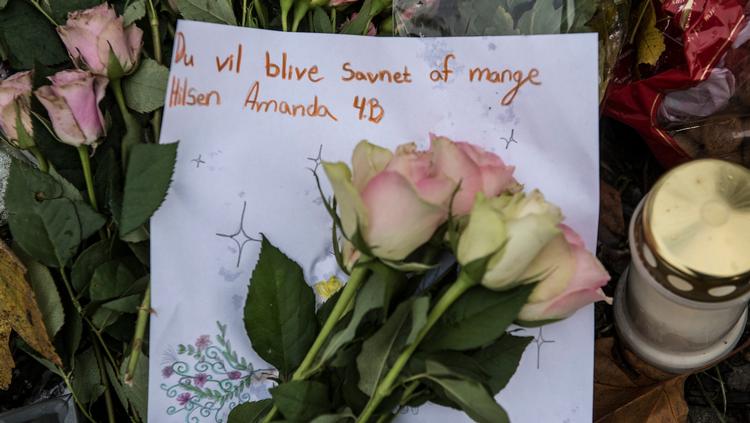 Du vil blive savnet af mange
Hilsen Amanda 4.B